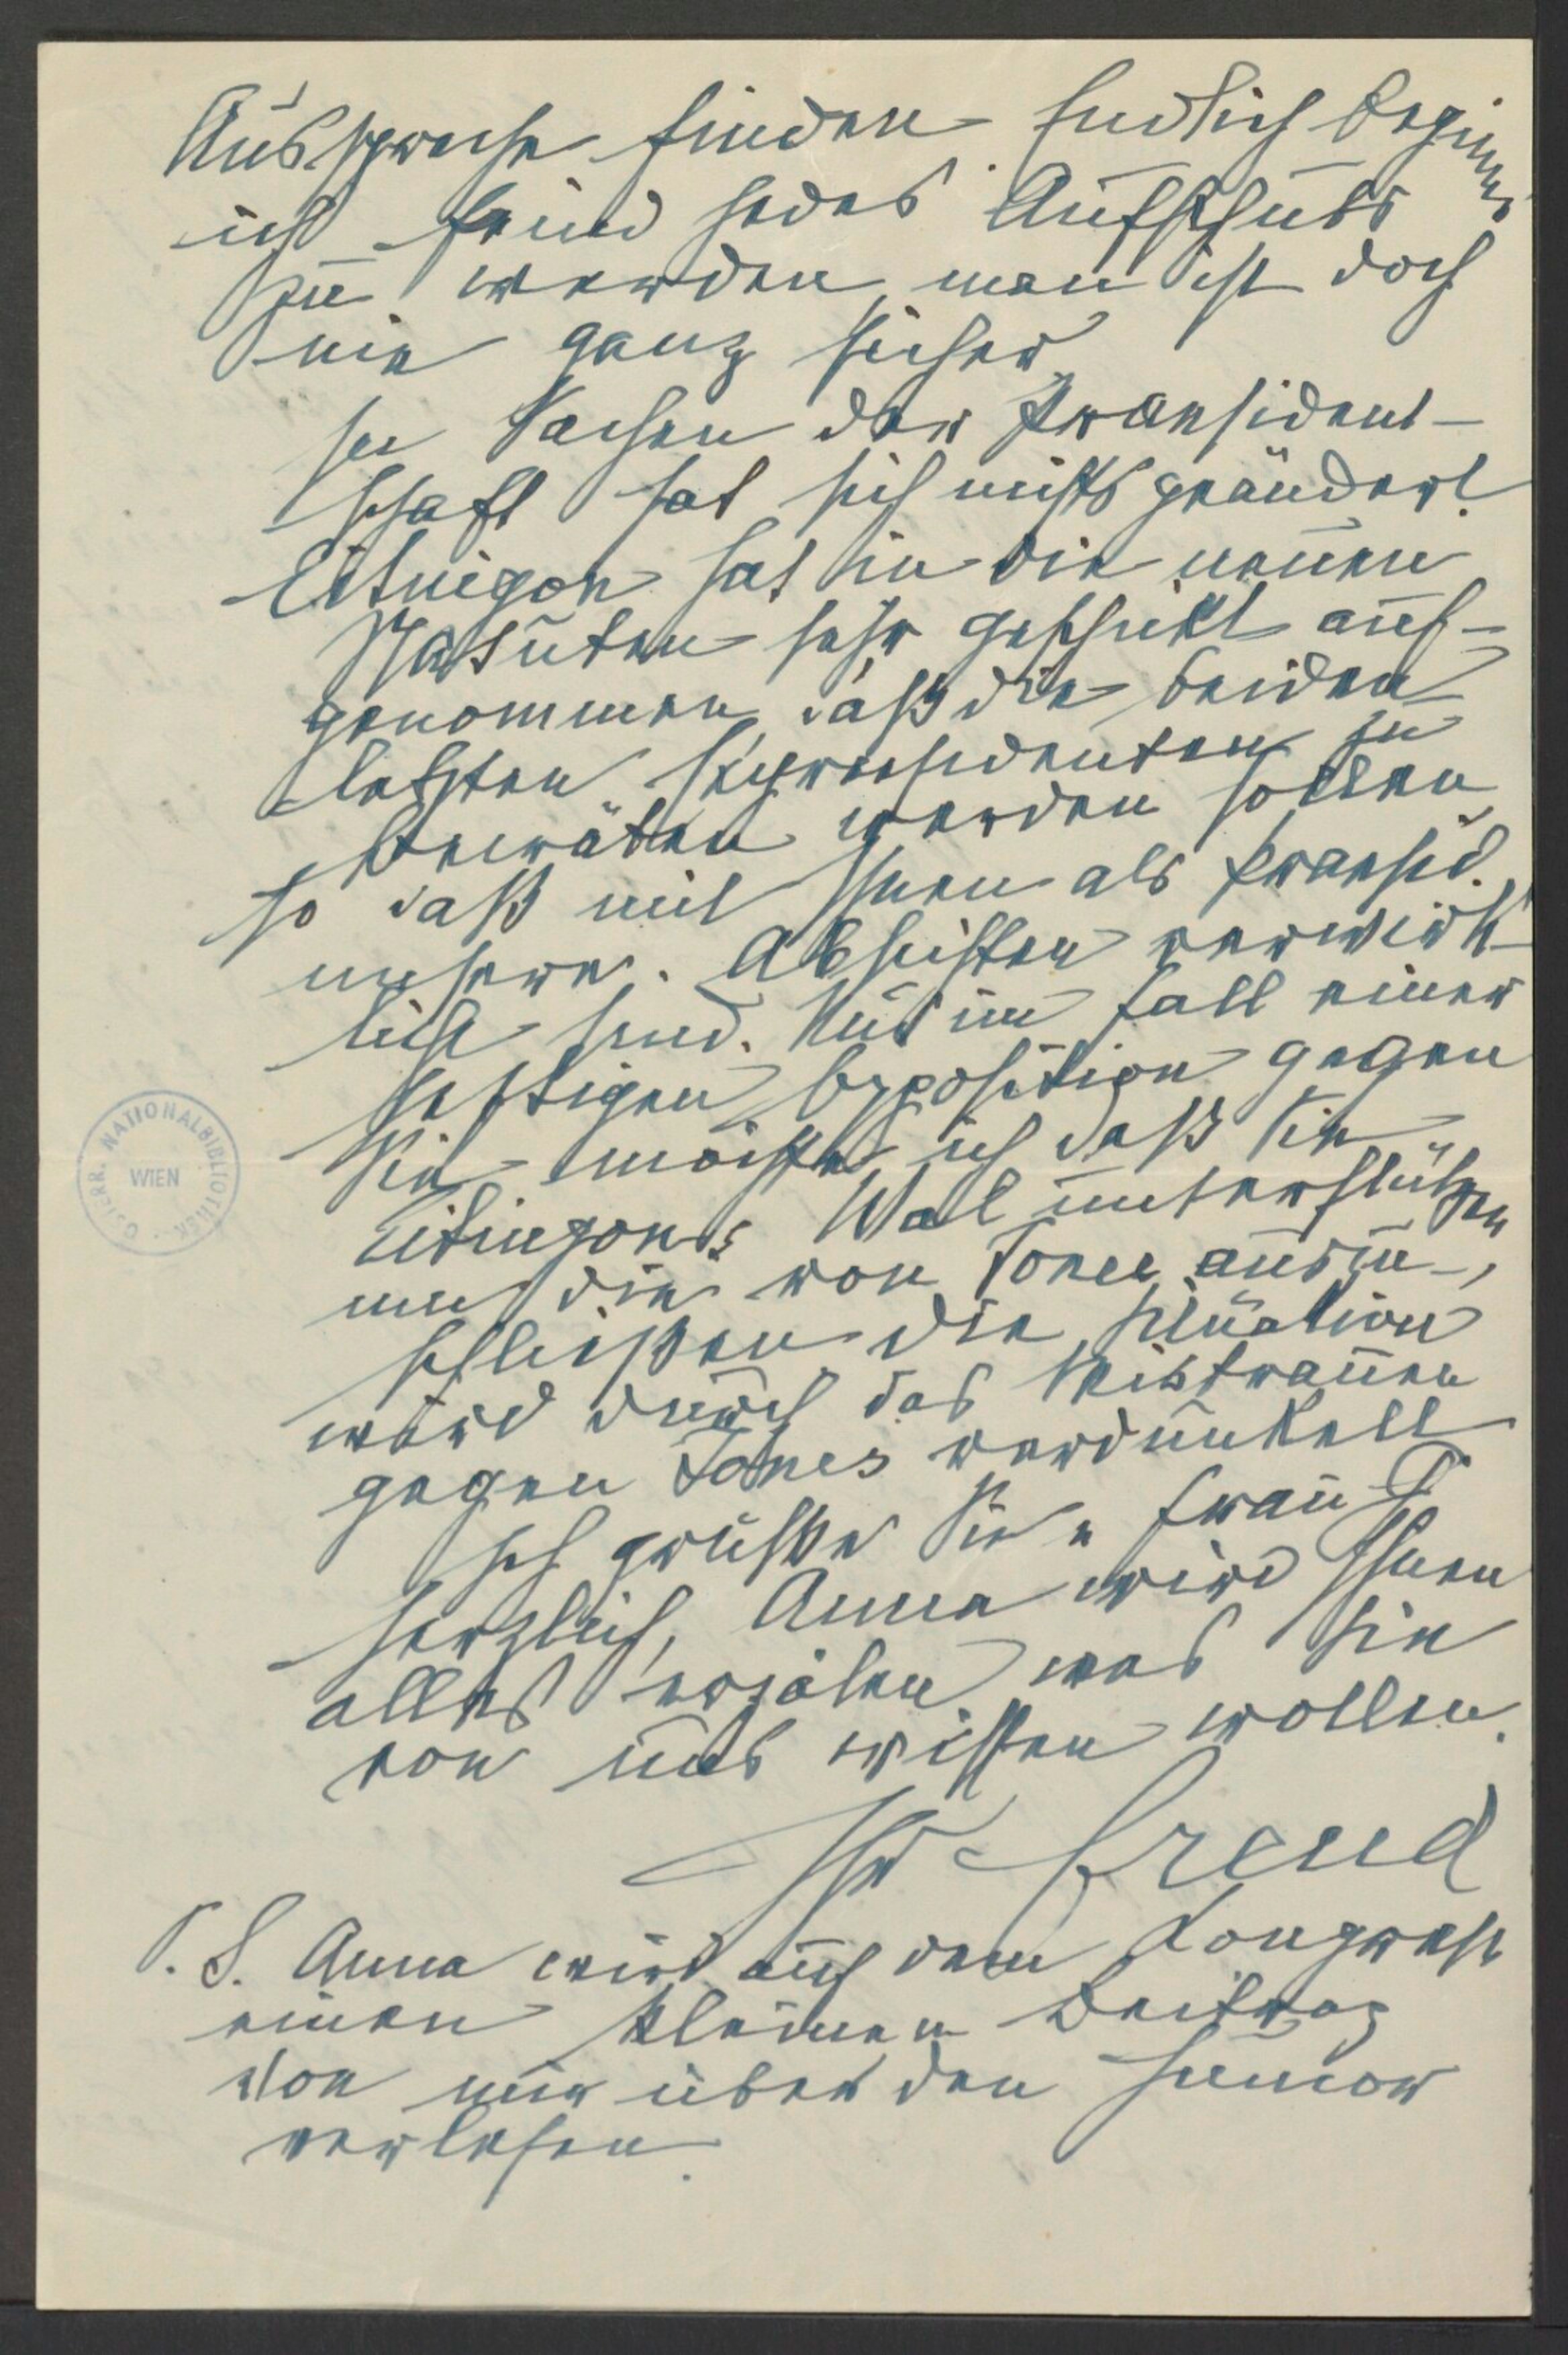 Aussprache finden. Endlich beginne
ich feind jedes Aufschubs
zu werden, man ist doch
nie ganz sicher.
In Sachen der Praesident-
schaft hat sich nichts geändert.
Eitingon hat in die neuen
Statuten sehr geschickt auf-
genommen, daß die beiden
letzten Expraesidenten zu
Beiräten werden sollen,
so daß mit Ihnen als Praesid.
unsere Absichten verwirk-
licht sind. Nur im Fall einer
heftigen Opposition gegen
Sie möchte ich daß Sie
Eitingons Wal unterstützen
um die von Jones auszu-
schließen. Die Situation
wird durch das Mistrauen
gegen Jones verdunkelt
Ich grüße Sie u Frau G
herzlich, Anna wird Ihnen
alles erzälen was Sie
von uns wissen wollen.
Ihr Freud
P. S. Anna wird auf dem Kongress
einen kleinen Beitrag
von mir über den Humor
verlesen.
ÖSTERR. NATIONALBIBLIOTHEK
WIEN